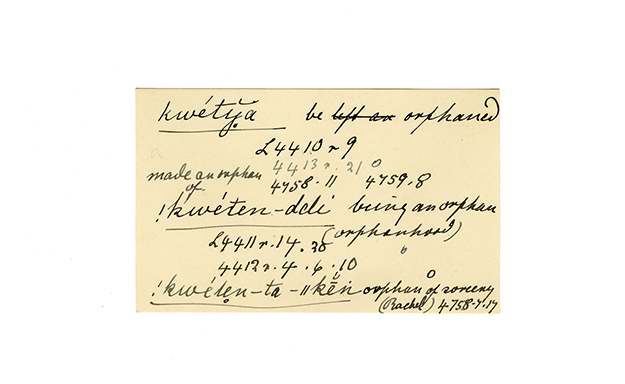 kwétŭa be left an orphaned
L4410 r 9
made an orphan 4413 r. 21
of 4758. 11 4759. 8
!kwéten-deli being an orphan
L4411 r. 14. 20 (orphanhood)
4412 r. 4. 6. 10
!kwéten-ta-||kēn orphan of sorcery
(Rachel) 4758-7.17